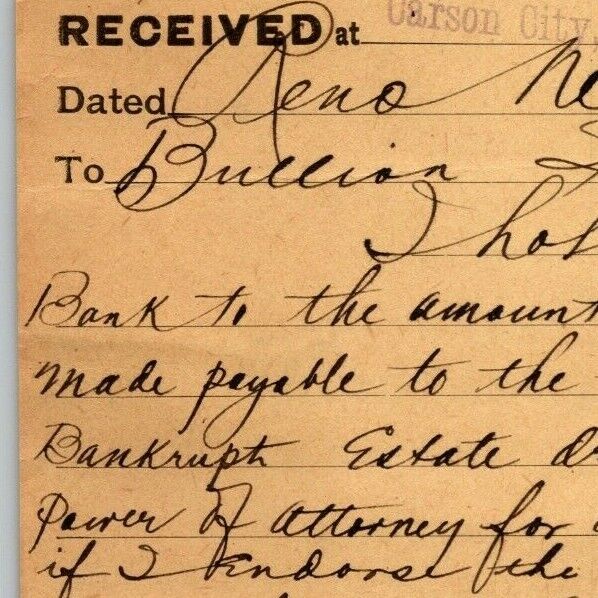 Carson City,
RECEIVED at
Dated Reno Ne
To Bullion
I hol
Bank to the amount
made payable to the
Bankrupt Estate dr
Power of Attorney for
if I Endorse the